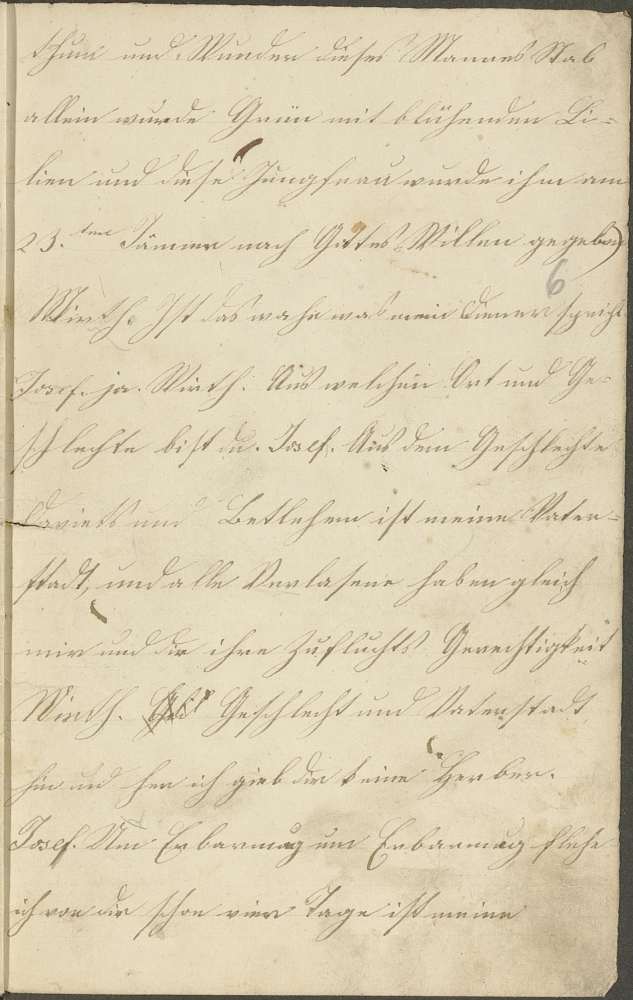 und Wunder dieses Mannes Stab
allein wurde Grün mit blühenden Li=
lien und diese Jungfrau wurde ihm am
23.ten Jänner nach Gottes Willen gegeben
6
Wirth. Ist das wahr was mein Diener spricht
Josef. ja. Wirth: Aus welchen Ort und Ge=
schlechte bist du. Josef. Aus dem Geschlechte
Davids und Betlehem ist meine Vater=
stadt, und alle Verlasene haben gleich
mir und dir ihre Zufluchts Gerechtigkeit
Wirth. Geschlecht und Vaterstadt
hin und her ich gieb dir keine Herber.
Josef. Um Erbarmug um Erbarmug flehe
ich von dir schon vier Tage ist meine